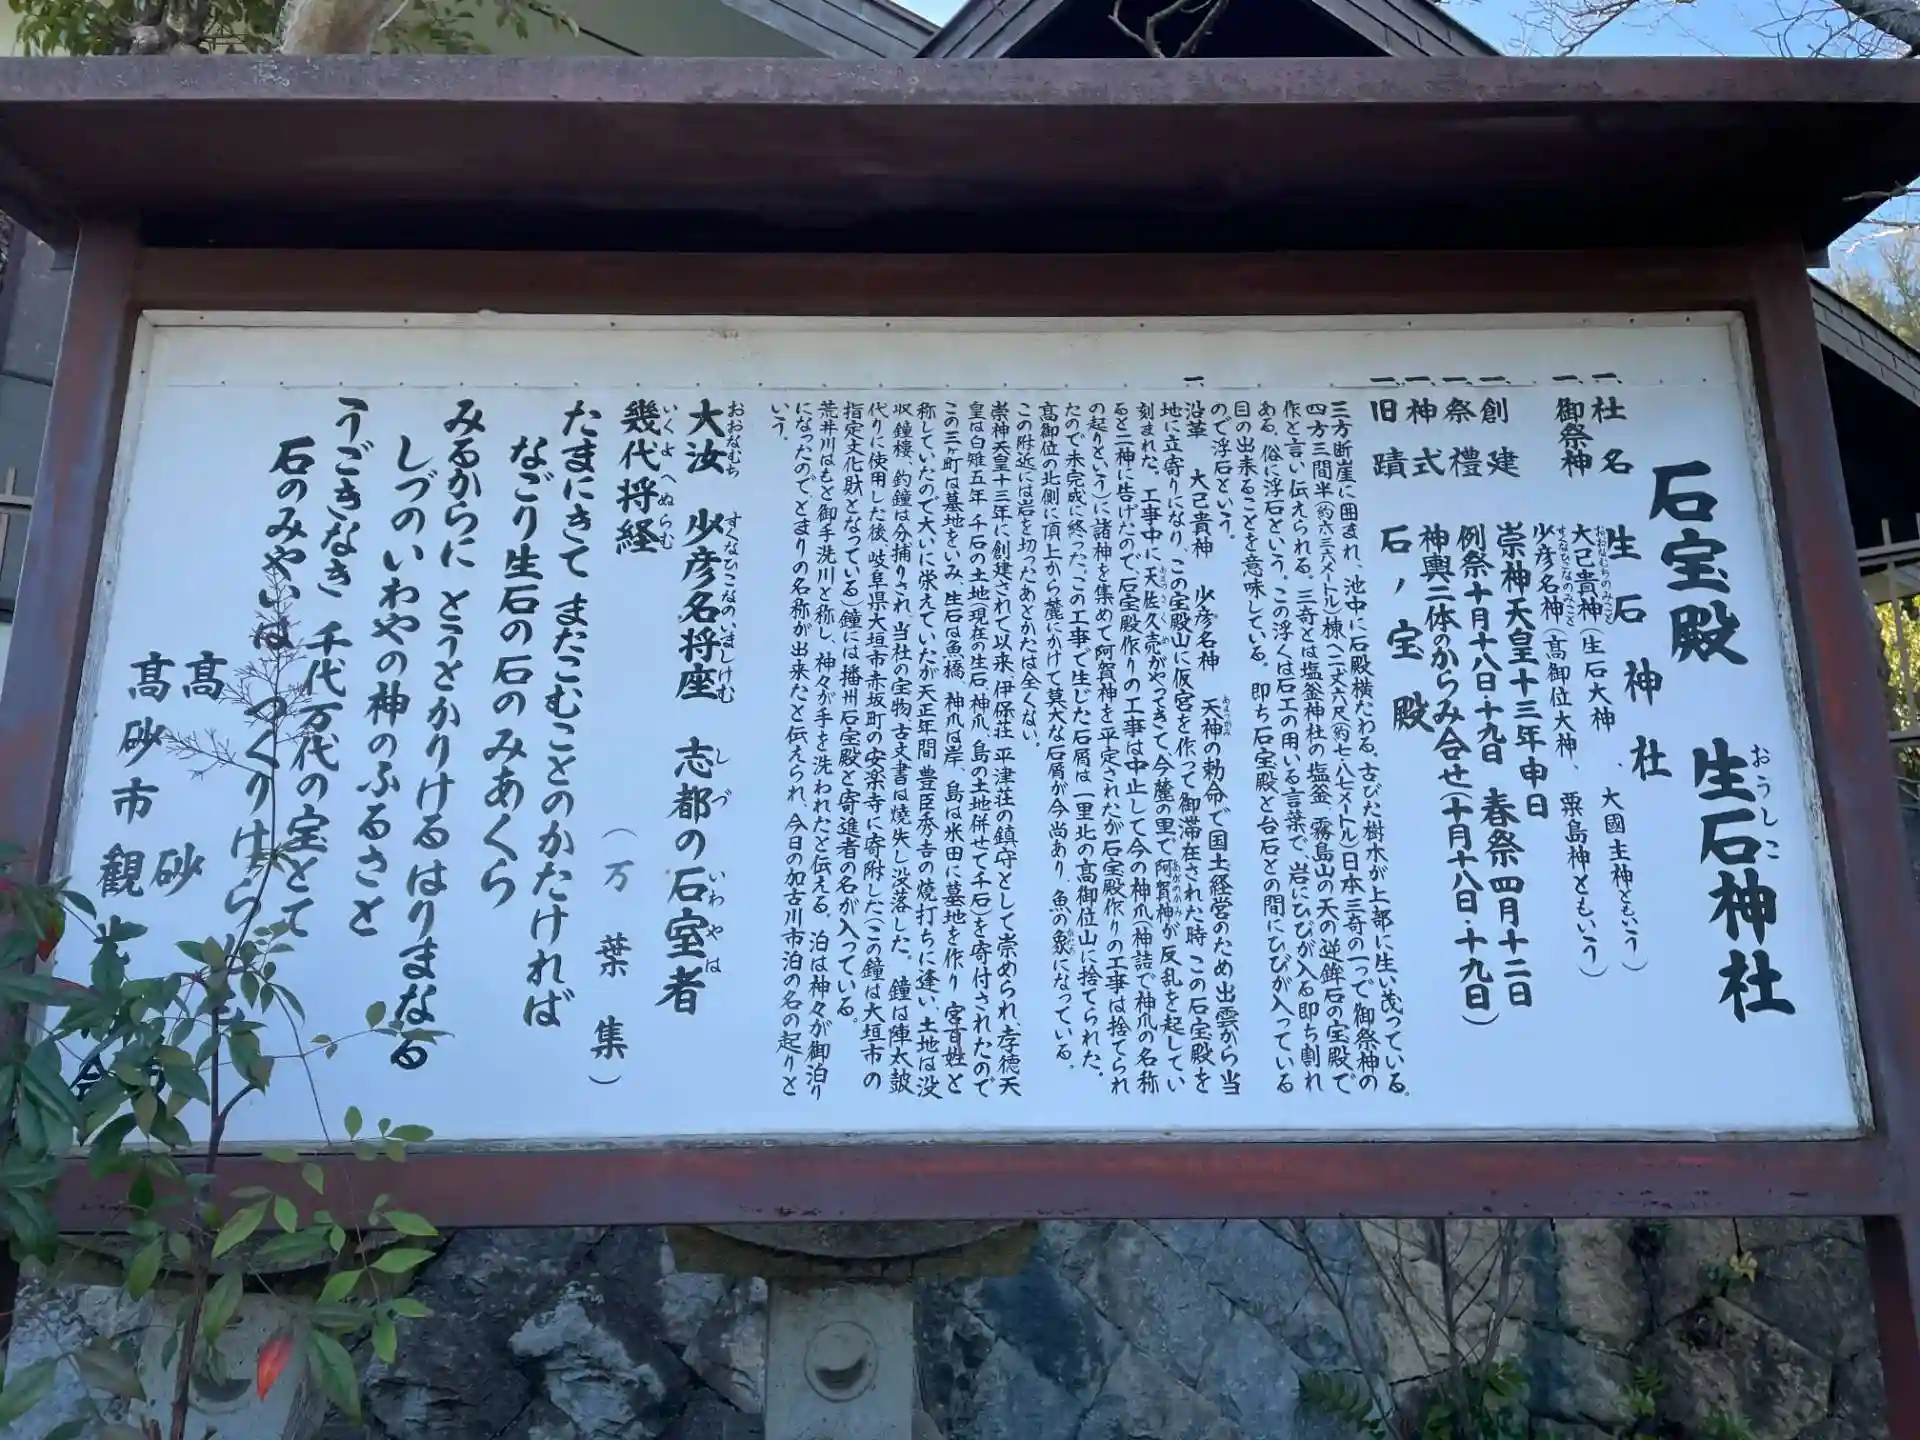 石宝殿　生石神社
おうしこ
一、社名　生石神社
一、御祭神　大己貴神（生石大神、大國主神ともいう）
おおなむちのみこと
少彦名神（高御位大神、粟島神ともいう）
すくなひこなのみこと
一、創建　崇神天皇十三年申日
一、祭禮　例祭十月十八日・十九日　春祭四月十二日
一、神式　神輿二体のからみ合せ（十月十八日・十九日）
一、旧蹟　石ノ宝殿
三方断崖に囲まれ、池中に石殿横たわる。古びた樹木が上部に生い茂っている。
四方三間半（約六・三六メートル）棟へ二丈六尺（約七・八七メートル）日本三奇の一つで御祭神の
作と言い伝えられる。三奇とは塩釜神社の塩釜、霧島山の天の逆鉾石の宝殿で
ある。俗に浮石という。この浮くは石工の用いる言葉で、岩にひびが入る即ち割れ
目の出来ることを意味している。即ち石宝殿と台石との間にひびが入っている
ので浮石という。
一、沿革　大己貴神　少彦名神　天神の勅命で国土経営のため出雲から当
あまつかみ
地に立寄りになり、この宝殿山に仮宮を作って御滞在された時この石宝殿を
刻まれた。工事中に天佐久売がやってきて、今麓の里で阿賀神が反乱を起してい
あまさくめ
あがのかみ
ると二神に告げたので、石宝殿作りの工事は中止して今の神爪（神詰で神爪の名称
の起りという）に諸神を集めて阿賀神を平定されたが石宝殿作りの工事は捨てられ
たので未完成に終った。この工事で生じた石屑は一里北の高御位山に捨てられた。
高御位の北側に頂上から麓にかけて莫大な石屑が今尚あり、魚の象になっている。
この附近には岩を切ったあとかたは全くない。
崇神天皇十三年に創建されて以来、伊保荘、平津荘の鎮守として崇められ、孝徳天
皇は白雉五年千石の土地（現在の生石、神爪、島の土地併せて千石）を寄付されたので
この三ヶ町は墓地をいみ、生石は魚橋、神爪は岸、島は米田に墓地を作り宮百姓と
称していたので大いに栄えていたが天正年間豊臣秀吉の焼打ちに逢い、土地は没
収、鐘楼、釣鐘は分捕りされ、当社の宝物古文書は焼失し没落した。鐘は陣太鼓
代りに使用した後、岐阜県大垣市赤坂町の安楽寺に寄附した（この鐘は大垣市の
指定文化財となっている）鐘には播州石宝殿と寄進者の名が入っている。
荒井川はもと御手洗川と称し、神々が手を洗われたと伝える。泊は神々が御泊り
になったのでとまりの名称が出来たと伝えられ、今日の加古川市泊の名の起りと
いう。
大汝　少彦名将座　志都の石室者
おおなむち　すくなひこなのいましけむ　しづ　いわやは
幾代将経
いくよへぬらむ
（万葉集）
たまにきて　またこむことのかたければ
なごり生石の石のみあくら
みるからに　とうとかりけるはりまなる
しづのいわやの神のふるさと
うごきなき　千代万代の宝とて
石のみやいは　つくりけら
高砂
高砂市観光